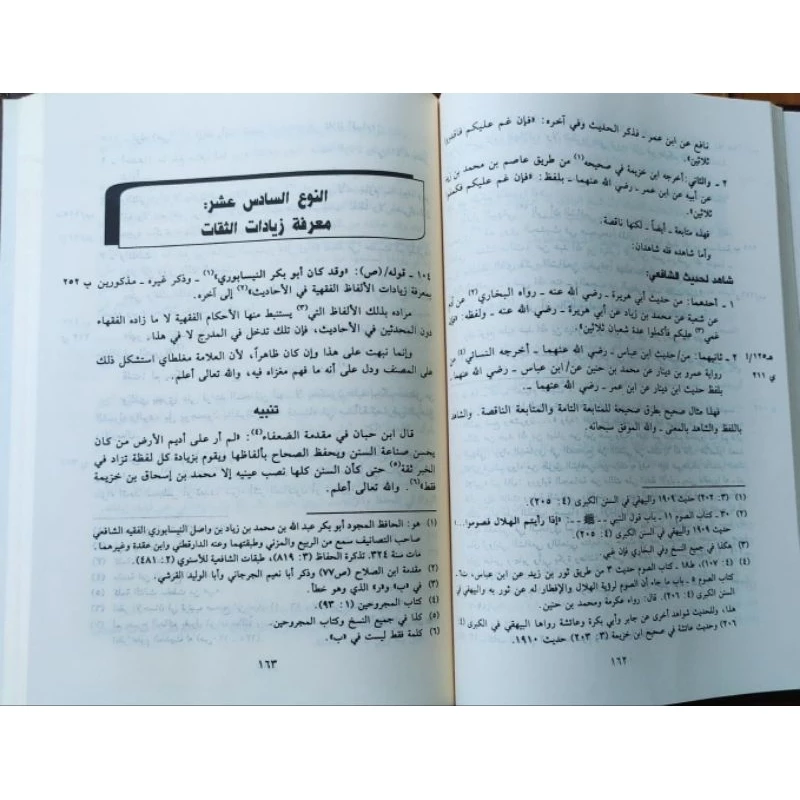 نافع عن ابن عمر ـ فذكر الحديث وفي آخره: «فإن غم عليكم
ثلاثين».
٢ ـ والثاني: أخرجه ابن خزيمة في صحيحه(١) من طريق عاصم بن محمد بن زيد
عن أبيه عن ابن عمر ـ رضي الله عنهما ـ بلفظ: «فإن غم عليكم
ثلاثين».
فهذه متابعة ـ أيضاً ـ لكنها ناقصة.
وأما شاهده فله شاهدان:
شاهد لحديث الشافعي:
١ ـ أحدهما: من حديث أبي هريرة ـ رضي الله عنه ـ رواه البخاري(٢) عن
عن شعبة عن محمد بن زياد عن أبي هريرة ـ رضي الله عنه ـ ولفظه:
غمي(٣) عليكم فأكملوا عدة شعبان ثلاثين».
هـ١٢٥/١
٢ ـ ثانيهما: من/حديث ابن عباس ـ رضي الله عنهما ـ أخرجه النسائي(٤)
ي ٢١١
رواية عمرو بن دينار عن محمد بن حنين عن/ابن عباس ـ رضي الله عنهما
بلفظ حديث ابن دينار عن ابن عمر ـ رضي الله عنهما ـ.
فهذا مثال صحيح بطرق صحيحة للمتابعة التامة والمتابعة الناقصة. والشاهد
باللفظ والشاهد بالمعنى ـ والله الموفق سبحانه.
(١) (٣: ٢٠٢) حديث ١٩٠٩ والبيهقي في السنن الكبرى (٤: ٢٠٥).
(٢) ٣٠ ـ كتاب الصوم ١١ ـ باب قول النبي ـ ﷺ ـ: «إذا رأيتم الهلال فصوموا...»
حديث ١٩٠٩ والبيهقي في السنن الكبرى (٤: ٢٠٥)
(٣) هكذا في جميع النسخ وفي البخاري فإن غبي.
(٤) (٤: ١٠٧)، ط١٨ـ كتاب الصوم حديث ٣ من طريق ثور بن زيد عن ابن عباس،
كتاب الصوم ٥ ـ باب ما جاء أن الصوم لرؤية الهلال والإفطار له عن ثور به والبيهقي في
السنن الكبرى (٤: ٢٠٦). قال: رواه عكرمة ومحمد بن حنين.
هذا، وللحديث شواهد أخرى عن جابر وأبي بكرة وعائشة رواها البيهقي في الكبرى (٤:
٢٠٦) وحديث عائشة في صحيح ابن خزيمة (٣: ٢٠٣) حديث ١٩١٠.
١٦٢
النوع السادس عشر:
معرفة زيادات الثقات
١٠٤ ـ قوله/(ص): «وقد كان أبو بكر النيسابوري»(١) ـ وذكر غيره ـ مذكورين
ب ٢٥٢
بمعرفة زيادات الألفاظ الفقهية في الأحاديث»(٢) إلى آخره.
مراده بذلك الألفاظ التي(٣) يستنبط منها الأحكام الفقهية لا ما زاده الفقهاء
دون المحدثين في الأحاديث، فإن تلك تدخل في المدرج لا في هذا.
وإنما نبهت على هذا وإن كان ظاهراً، لأن العلامة مغلطاي استشكل ذلك
على المصنف ودل على أنه ما فهم مغزاه فيه، والله تعالى أعلم.
تنبيه
قال ابن حبان في مقدمة الضعفاء(٤): «لم أر على أديم الأرض من كان
يحسن صناعة السنن ويحفظ الصحاح بألفاظها ويقوم بزيادة كل لفظة تزاد في
الخبر ثقة(٥) حتى كأن السنن كلها نصب عينيه إلا محمد بن إسحاق بن خزيمة
فقط»(٦). والله تعالى أعلم.
(١) هو: الحافظ المجود أبو بكر عبد الله بن محمد بن زياد بن واصل النيسابوري الفقيه الشافعي
صاحب التصانيف سمع من الربيع والمزني وطبقتهما وعنه الدارقطني وابن عقدة وغيرهما.
مات سنة ٣٢٤. تذكرة الحفاظ (٣: ٨١٩)، طبقات الشافعية للأسنوي (٢: ٤٨١).
(٢) مقدمة ابن الصلاح (ص٧٧) وذكر أبا نعيم الجرجاني وأبا الوليد القرشي.
(٣) في «ب» و«ر» الذي وهو خطأ.
(٤) كتاب المجروحين (١: ٩٣).
(٥) كذا في جميع النسخ وكتاب المجروحين.
(٦) كلمة فقط ليست في «ب».
١٦٣